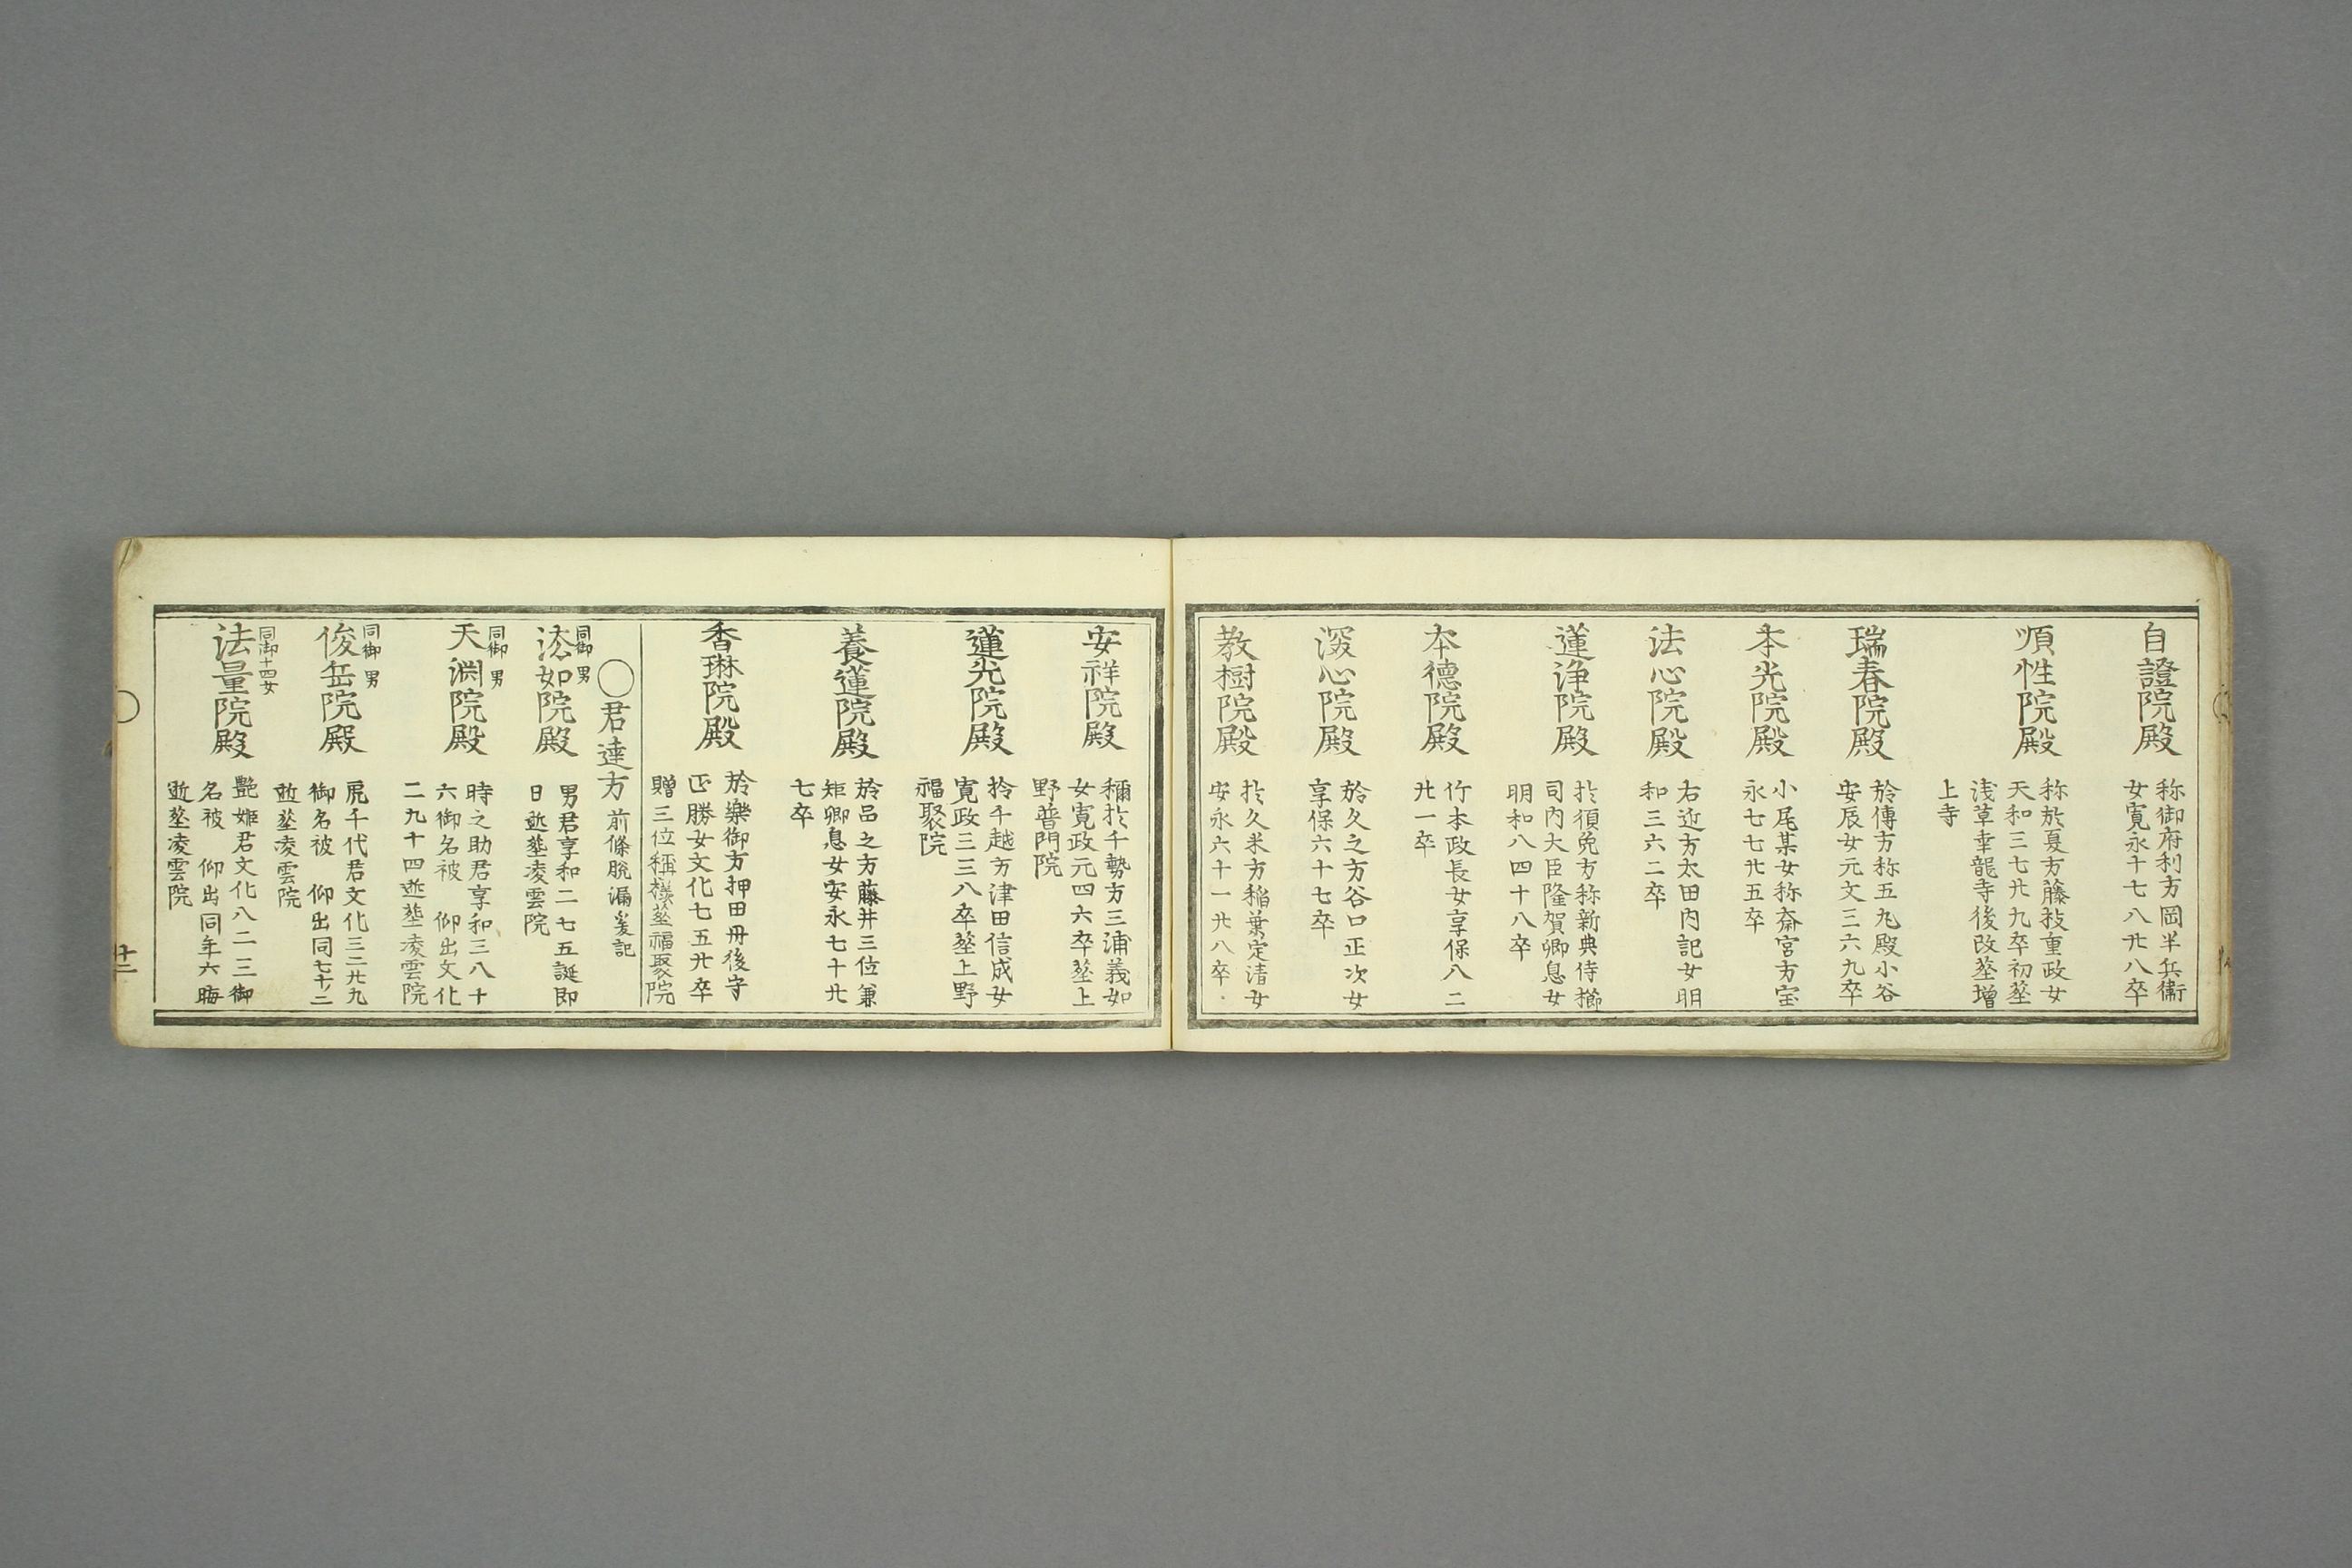 自證院殿
称御府利方岡半兵衞
女寛永十七八廿八卒
順性院殿
称於夏方藤枝重政女
天和三七廿九卒初塟
浅草幸龍寺後改塟増
上寺
瑞春院殿
於傳方称五丸殿小谷
安辰女元文三六九卒
本光院殿
小尾某女称斎宮方宝
永七七廿五卒
法心院殿
右近方太田内記女明
和三六二卒
蓮浄院殿
於須免方称新典侍櫛
司内大臣隆賀卿息女
明和八四十八卒
本德院殿
竹本政長女享保八二
廿一卒
深心院殿
於久之方谷口正次女
享保六十七卒
教樹院殿
於久米方稲葉定清女
安永六十一廿八卒
安祥院殿
稱於千勢方三浦義如
女寛政元四六卒塟上
野普門院
蓮光院殿
於千越方津田信成女
寛政三三八卒塟上野
福聚院
養蓮院殿
於品之方藤井三位兼
矩卿息女安永七十廿
七卒
香琳院殿
於樂御方押田丹後守
正勝女文化七五廿卒
贈三位稱様塟福聚院
〇君達方 前條脱漏爰記
同御男
法如院殿
男君享和二七五誕即
日逝塟凌雲院
同御男
天淵院殿
時之助君享和三八十
六御名被 仰出文化
二九十四逝塟凌雲院
同御男
俊岳院殿
虎千代君文化三二廿九
御名被 仰出同七十二
逝塟凌雲院
同御十四女
法量院殿
艶姫君文化八二三御
名被 仰出同年六晦
逝塟凌雲院
十二